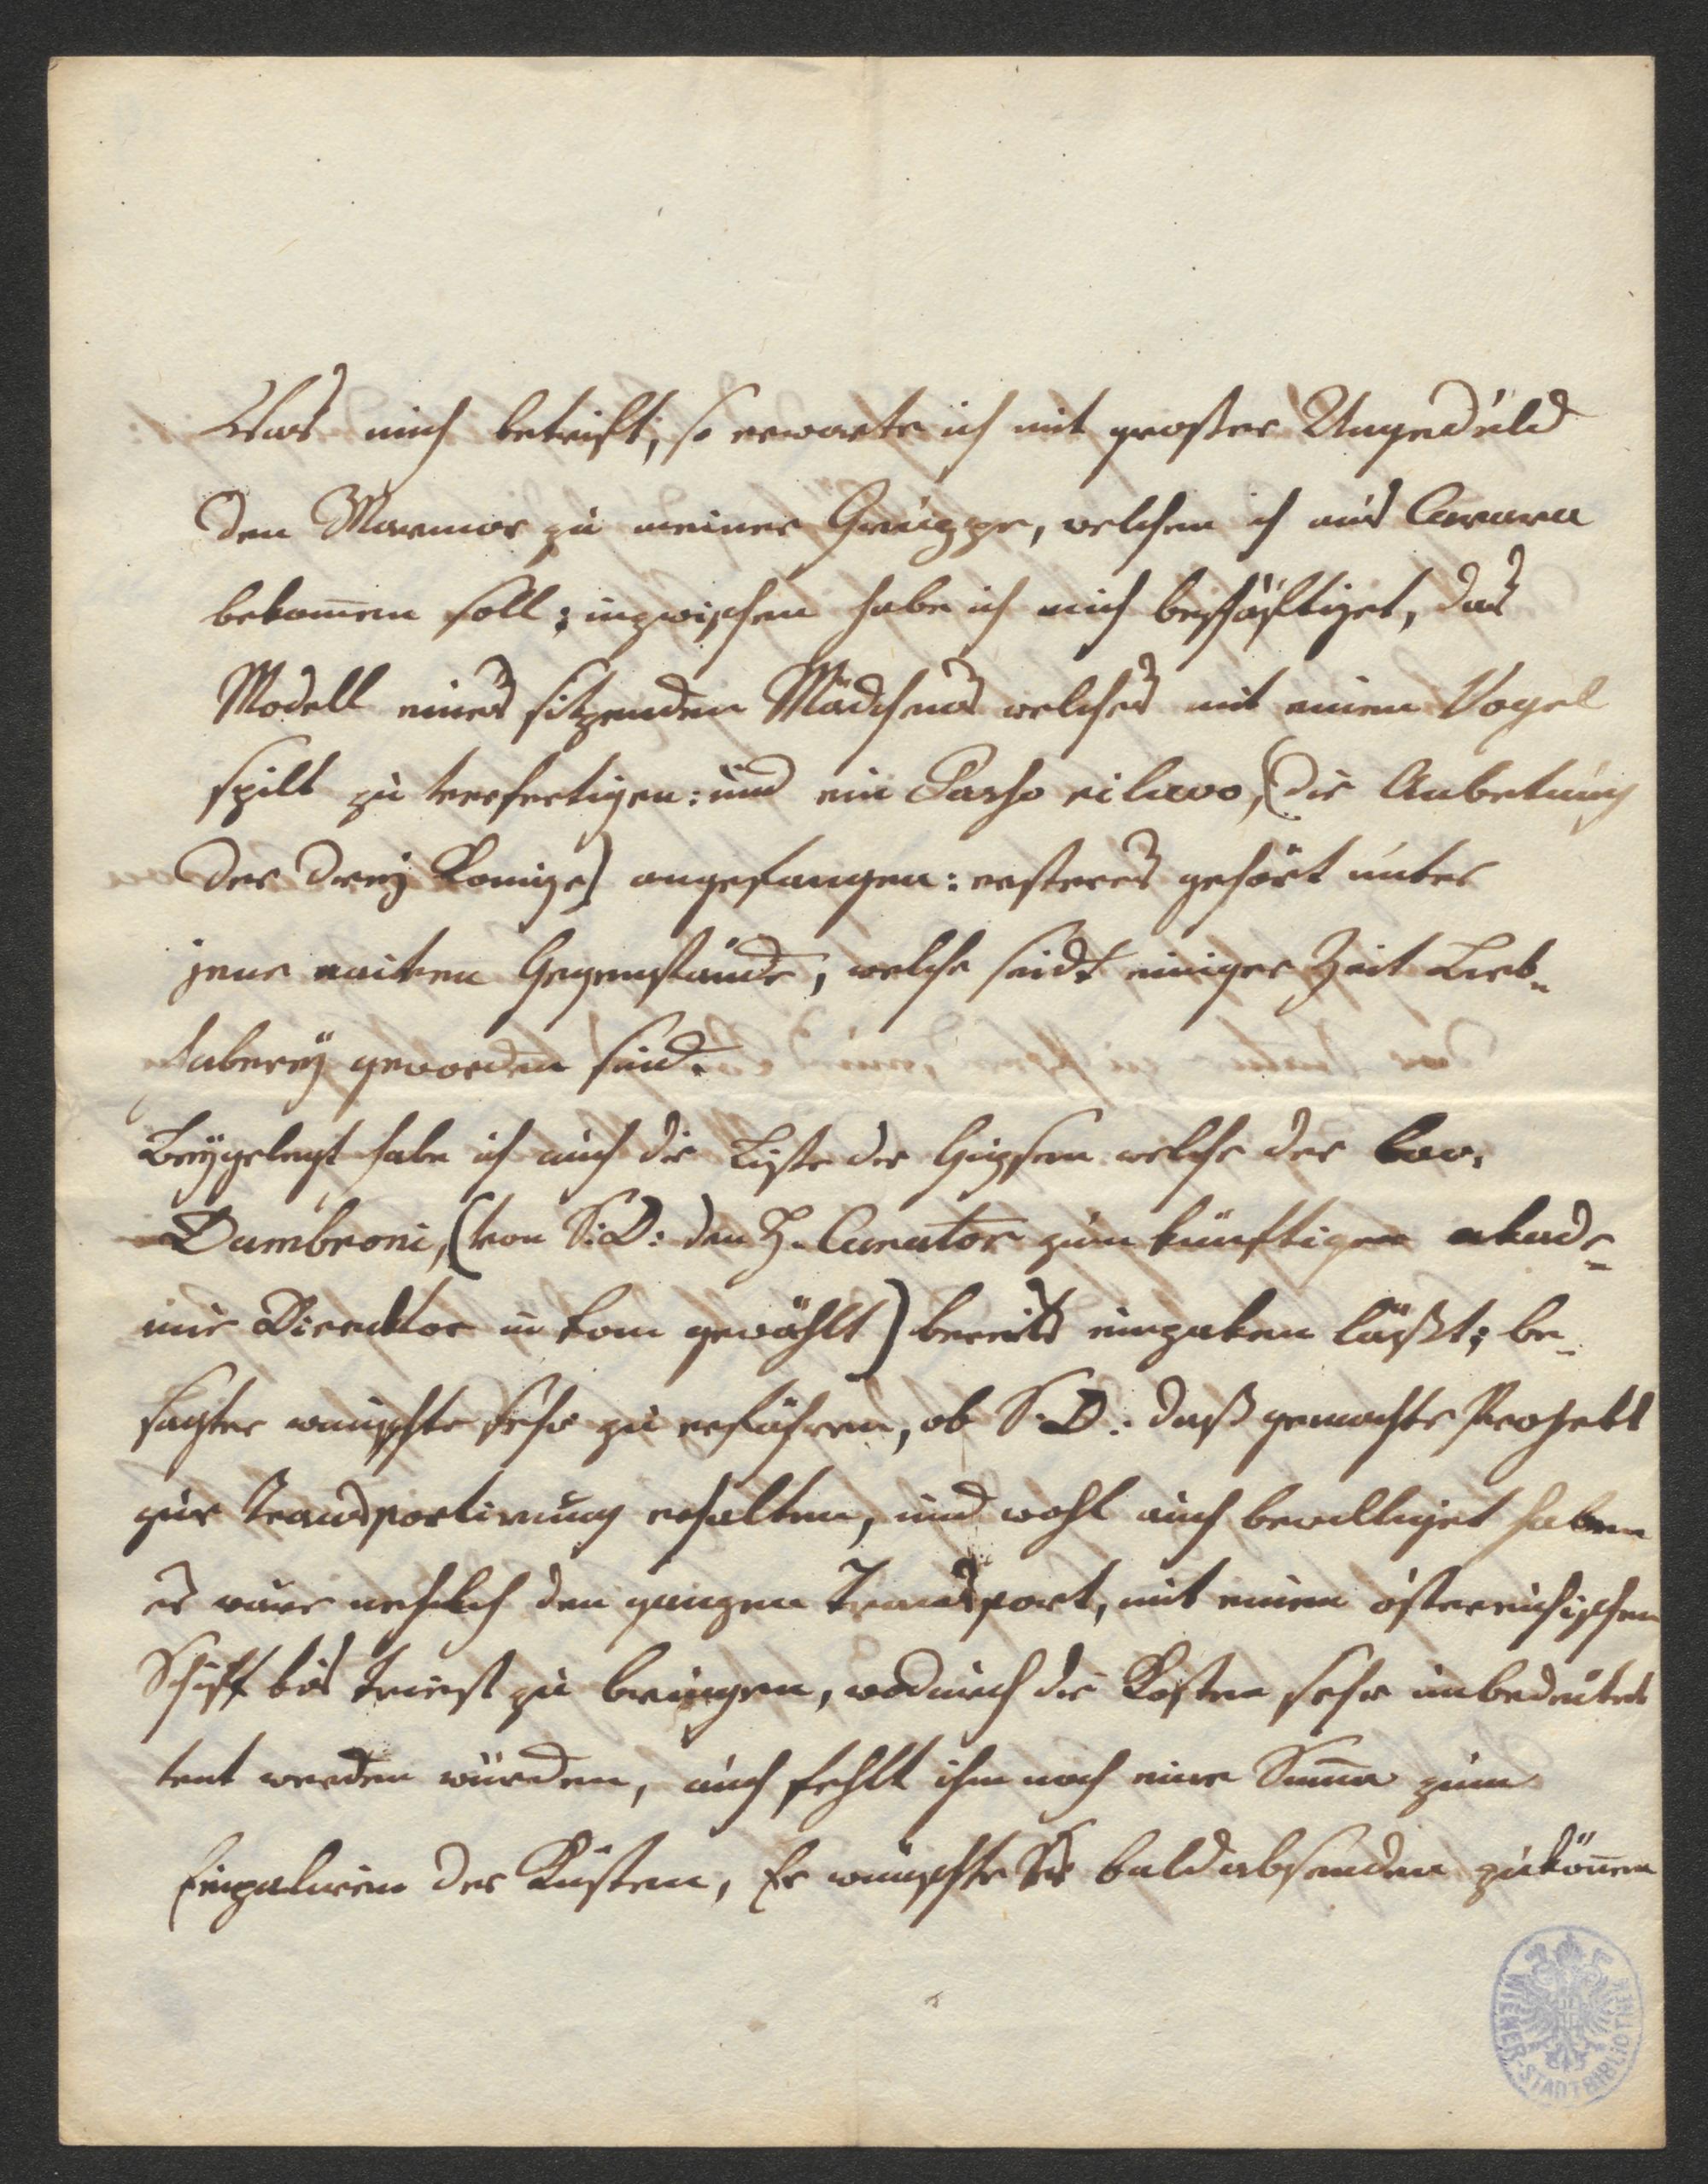 Was mich betrift, so erwarte ich mit großer Ungeduld
den Marmor zu meiner Gruppe, welchen ich aus Carara
bekom̄en soll; inzwischen habe ich mich beschäftiget, das
Modell eines sitzenden Mädchens welches mit einem Vogel
spilt zu verfertigen: und ein Basso rilievo, (die Anbetung
der drey Konige) angefangen: ersteres gehört unter
jene naiven Gegenstände, welche seidt einiger Zeit Lieb-
haberey geworden sind.
Beygelegt habe ich auch die Liste der Gipsen welche der Cav.
(von S: D: den H. Curator zum künftigen akade-
mie Direcktor in Rom gewählt) bereits einpaken läßt; be-
sagter wünschte sehr zu erfahren, ob S: D: daß gemachte Projekt
zur Transportirung erhalten, und wohl auch bewilliget haben
es wäre nehmlich den ganzen Transport, mit einem österreichischen
Schiff bis Triest zu bringen, wodurch die Kosten sehr unbedeuten
tent werden würden, auch fehlt ihm noch eine Sum̄a zum
der Kisten, Er wünschte Sie bald absenden zu kön̄en
WIENER-STADTBIBLIOTHEK